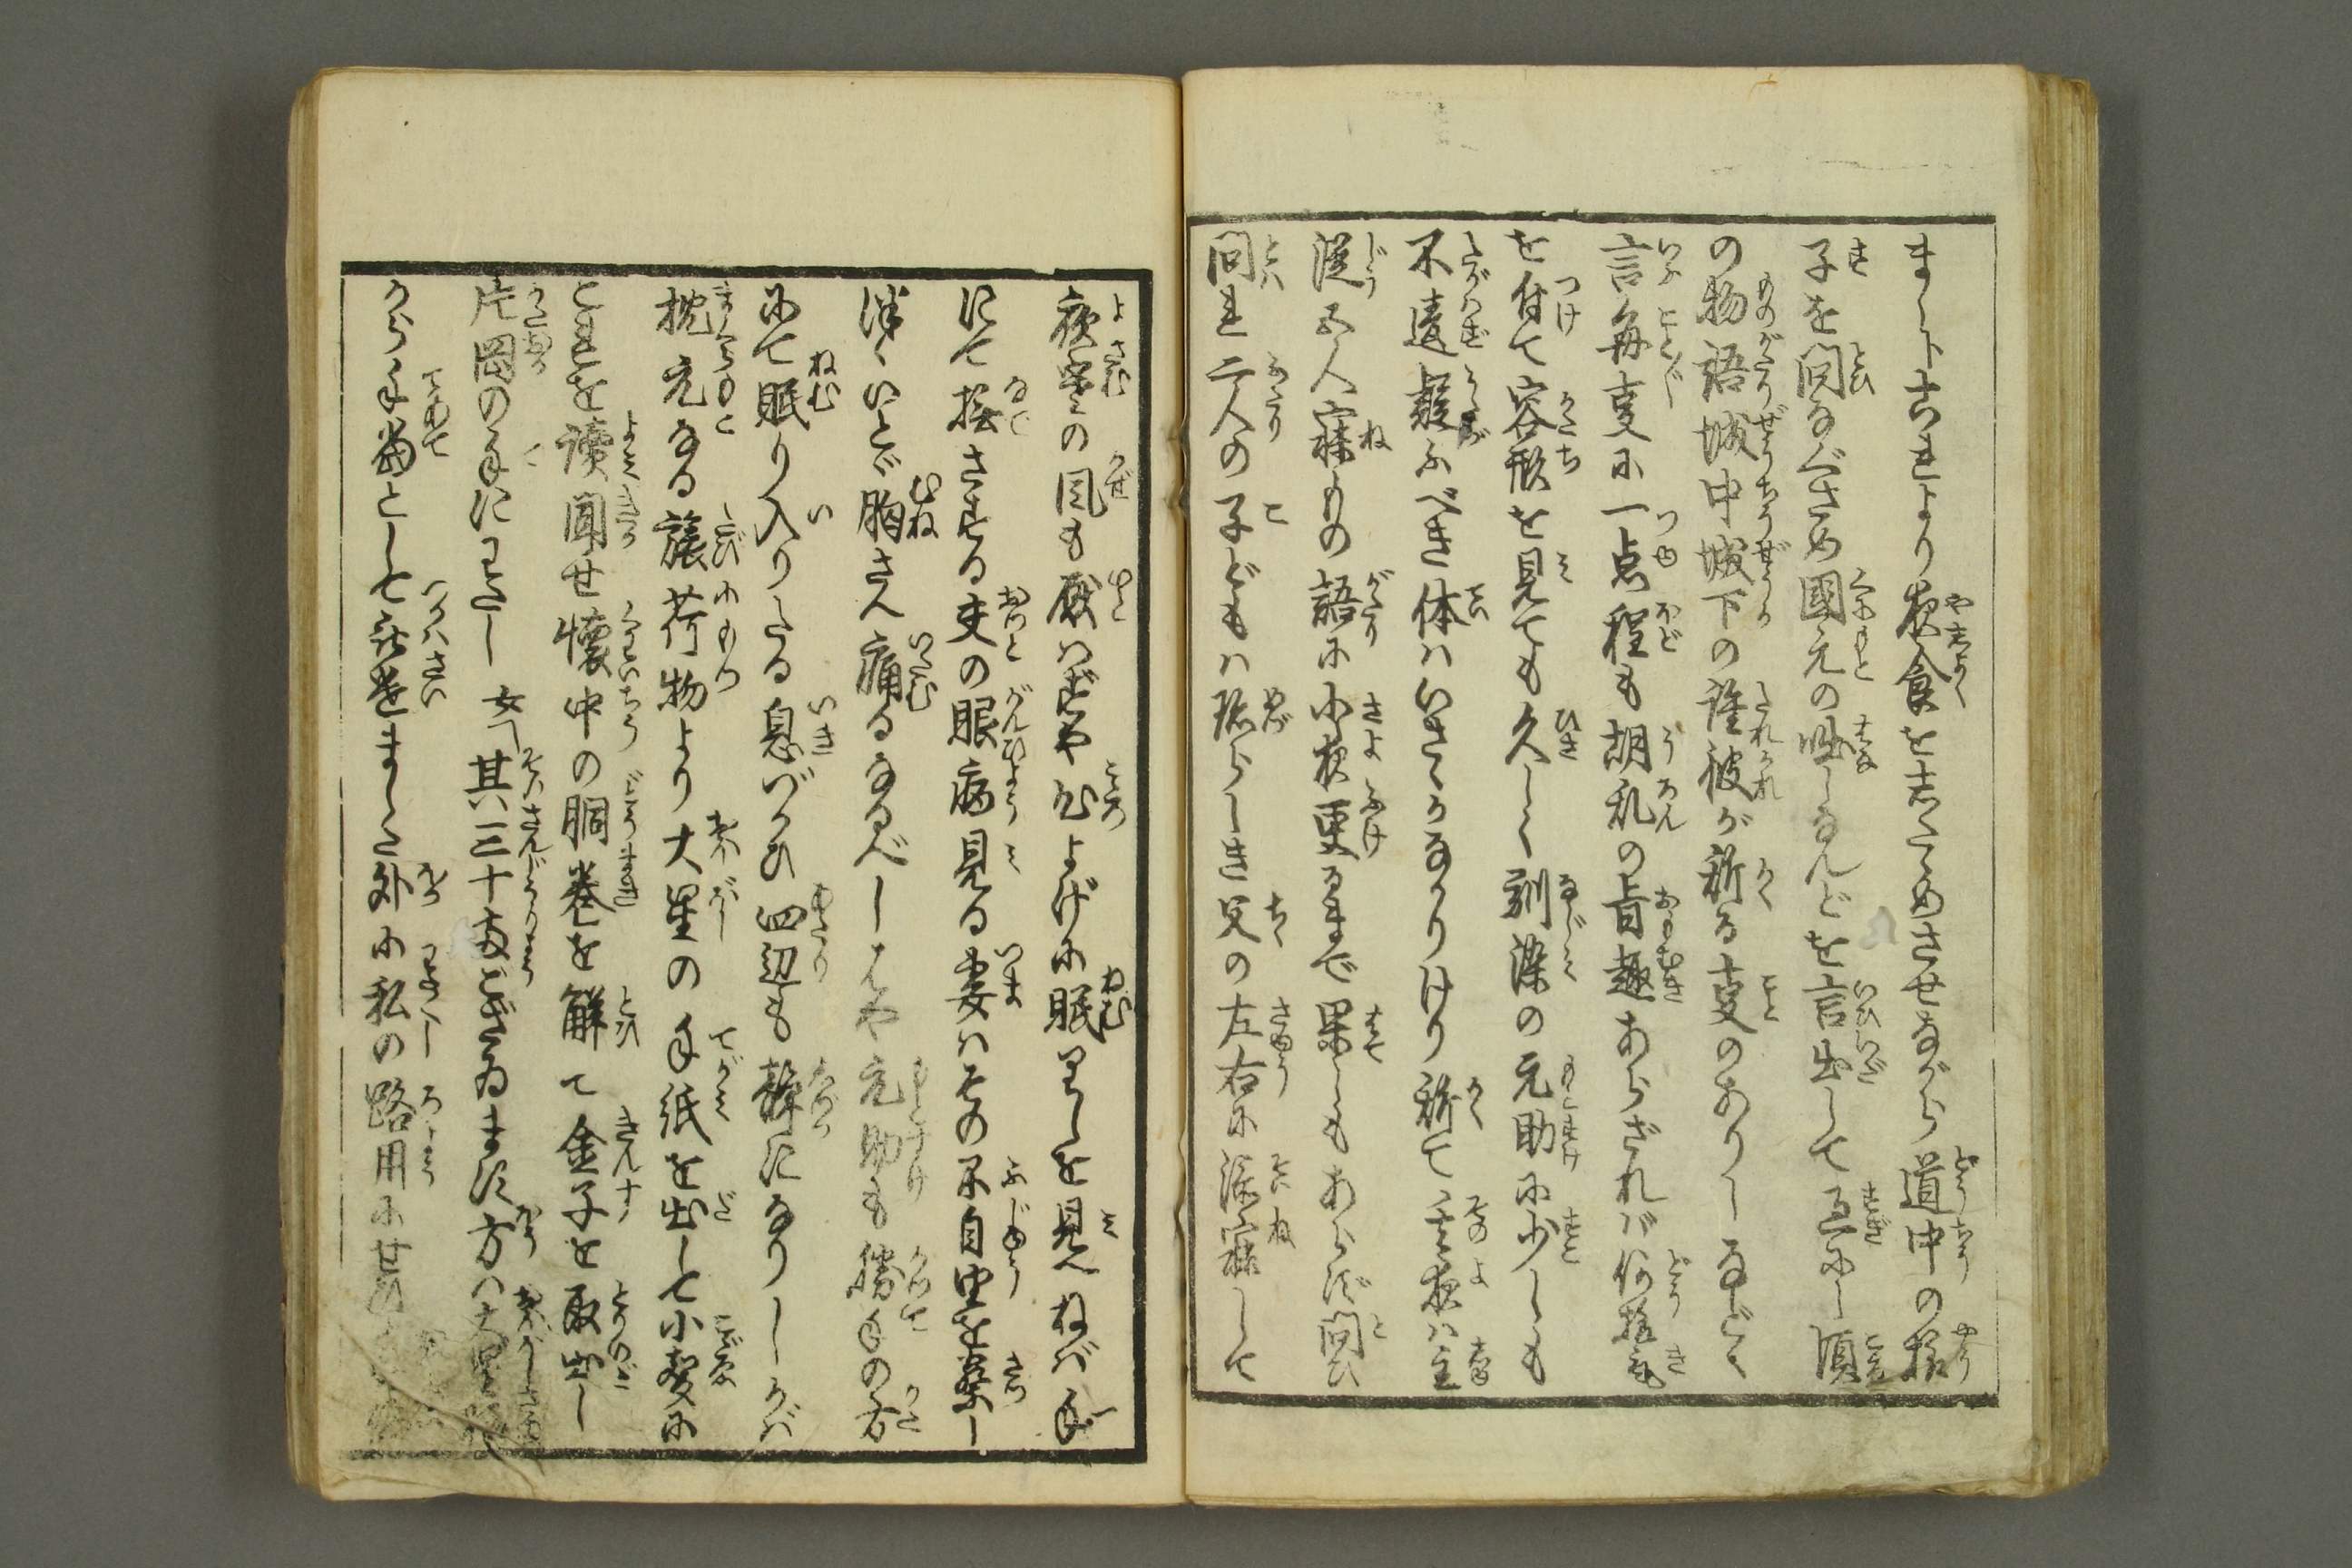 ましト古れより夜食を志たゝめさせながら道中の様
子を問なぐさめ國元の咄しなんどを言出して互にし頃
の物語城中城下の誰彼が斯る事のありしなどゝ
言毎事に一点程も胡乱の旨趣あらざれバ何
を付て容形を見ても久しく馴染の元助に少しも
不違疑ふべき体ハいさゝかなかりけり斯て其夜ハ主
従五人寐ものがたりに小夜更るまで果しもあらず問ひ
問れ二人の子どもハ珍らしき父の左右に添寐して
夜寒の風も厭ハずや心よげに眠りしを見へねバ手
にて撫さする夫の眼病見る妻ハその不自由を察し
涙ぐいとゞ胸さへ痛るなるべしはや元助も勝手の方
にて眠り入りたる息づかひ四辺も静になりしかバ
枕元なる旅荷物より大星の手紙を出して小聲に
これを讀聞せ懐中の胴巻を解て金子を取出し
片岡の手にわたし 女「其ハ三十両ござゐます方ハ大星
から手当として被遣ました外に私の路用にせ